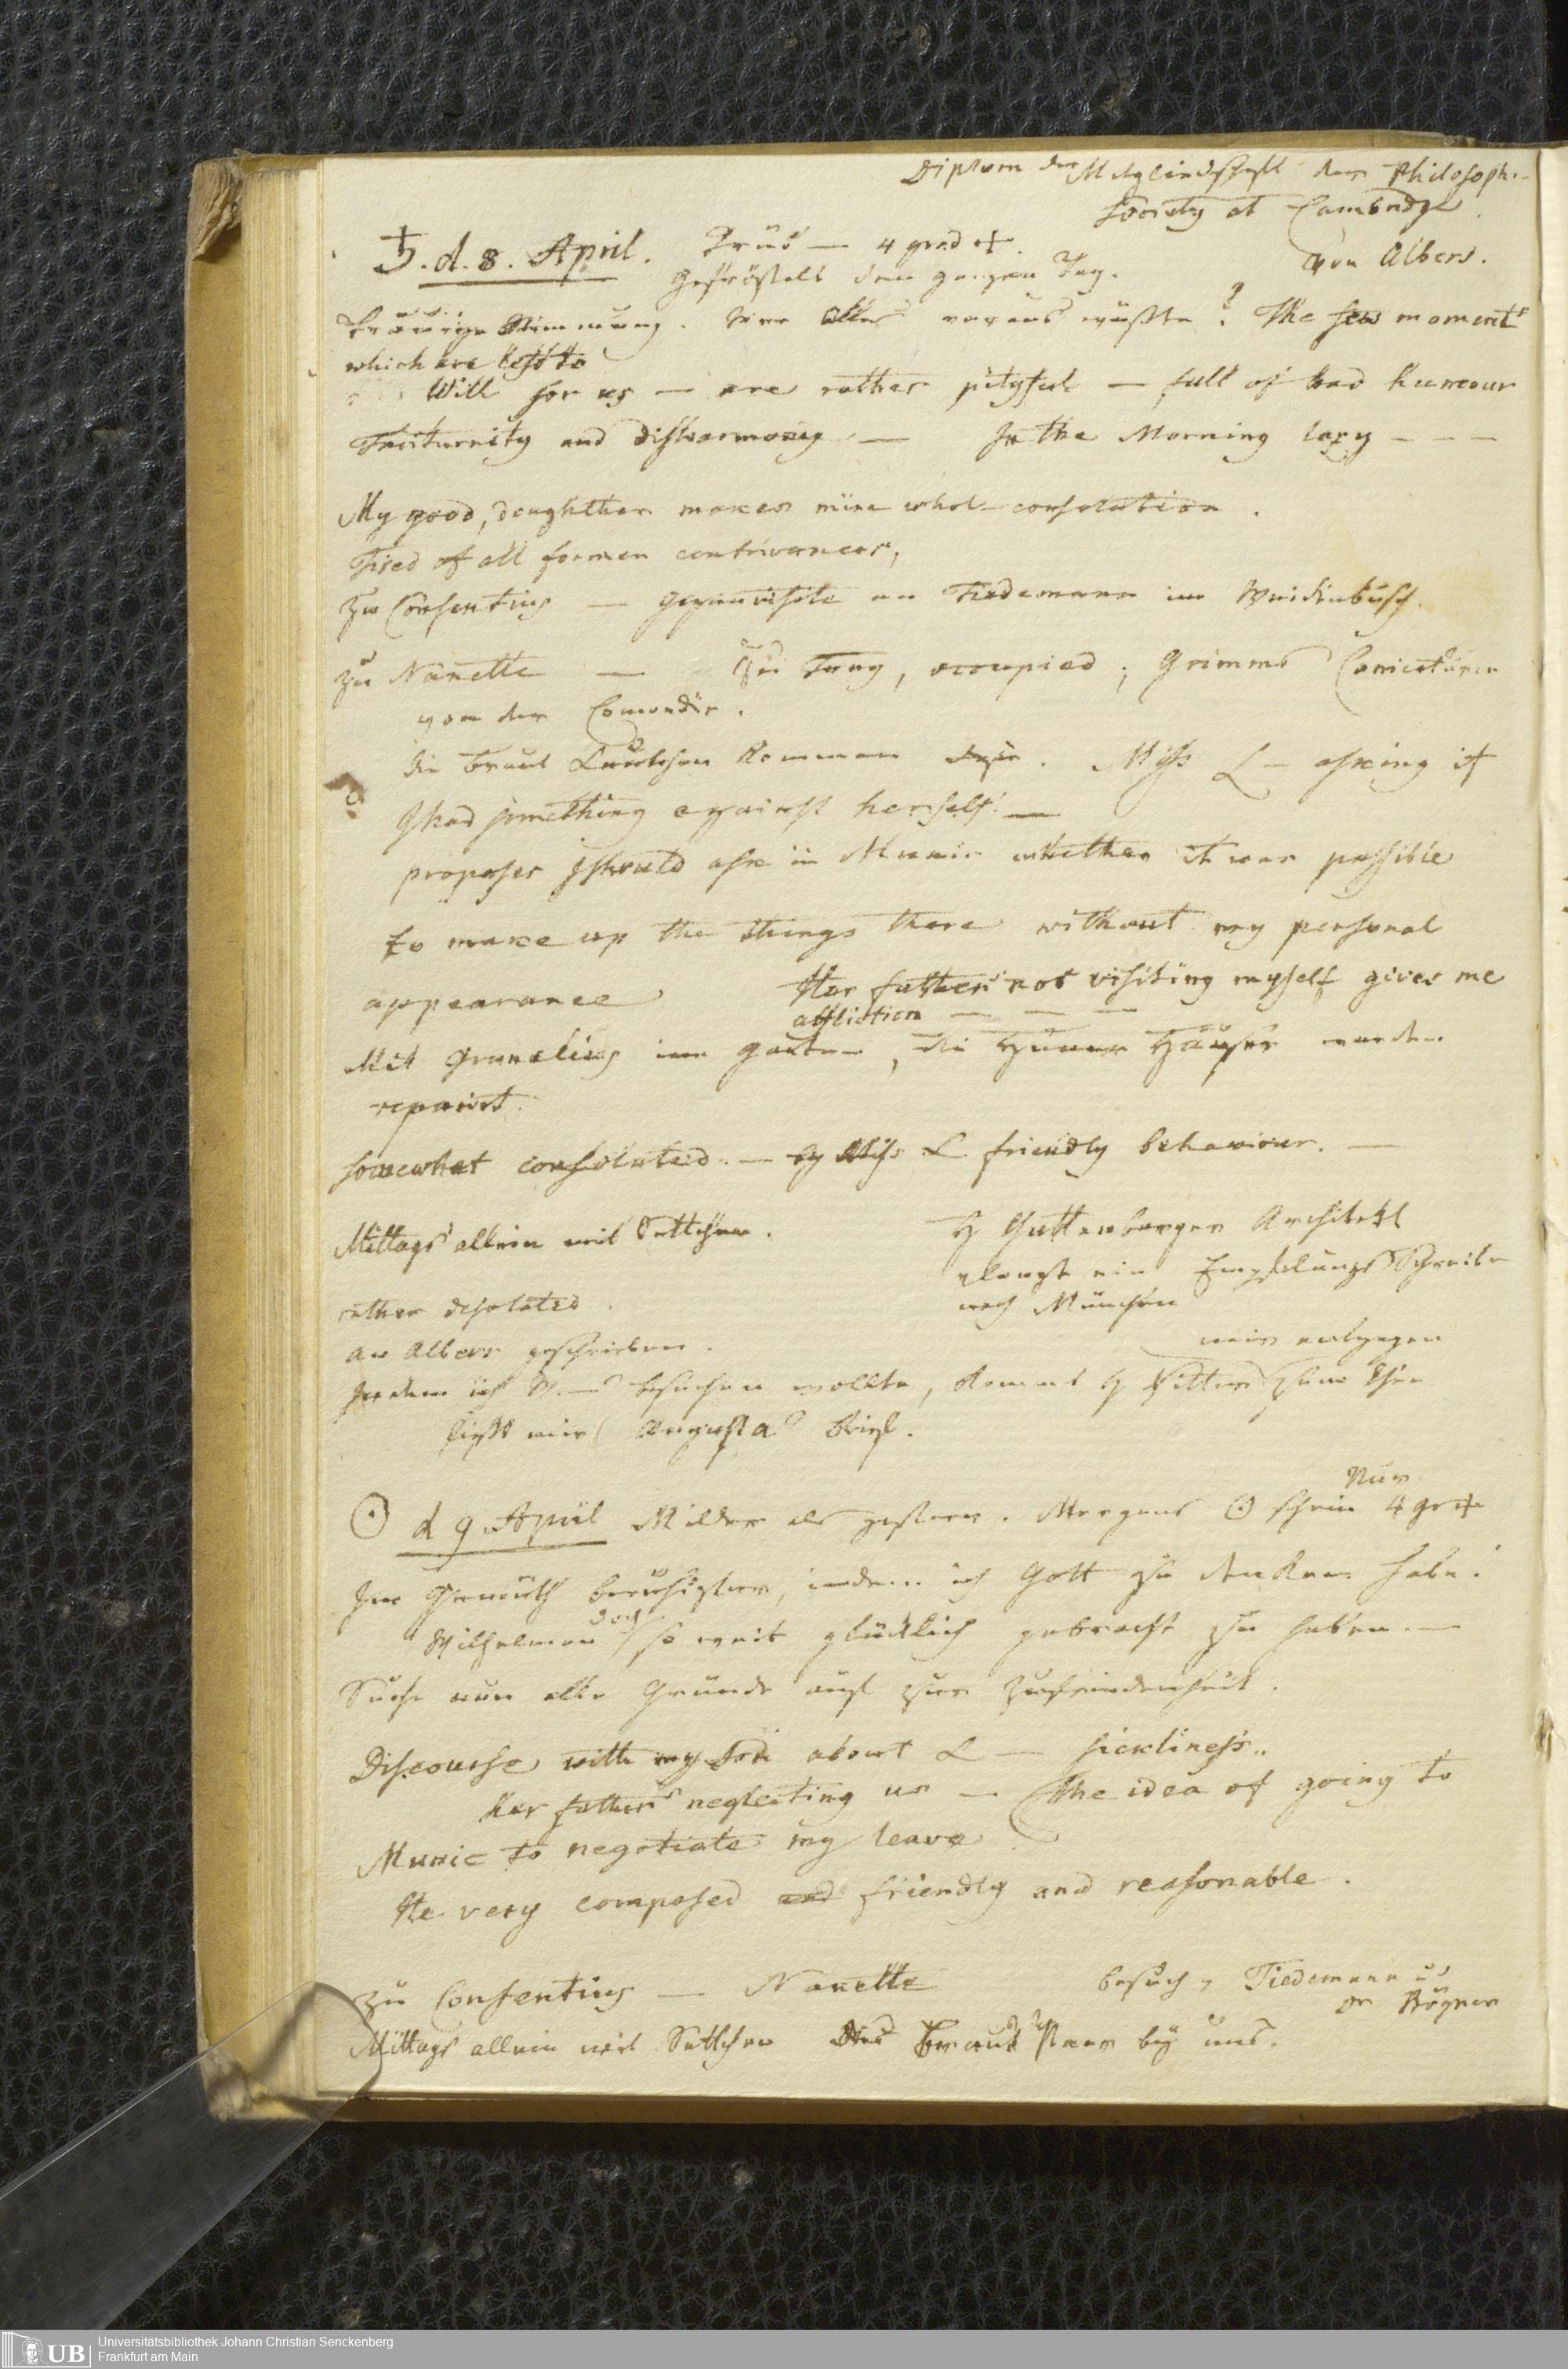 Diplom der Mitgliedschaft der Philosoph.-
Society at Cambridge
von Albers.
♄. d. 8. April. Trüb — 4 grad +.
Gefröstelt den ganzen Tag.
traurige Stimmung. Wer alles voraus wüßte? The few moments
which are left to
Will for us — are rather pityful — full of bad humour
Taciturnity and disharmony — In the Morning lazy - - -
My good, doughther makes mine whole consolation.
Tired of all former contrivances,
Zu Consentius — gegenvisite an Tiedemann im Weidenbusch.
Zu Nanette — occupied; Grimms Carricaturen
von der Comoedie.
die Braut Knudchen kommen Miss L — asking if
I had something against herself! —
proposes I should ask in Munic whether it was possible
to make up the things there without my personal
appearance Her father's not visiting myself gives me
affliction — — —
Mit Grunelius im garten, die Häuser werden
reparirt.
somewhat consolated. — by Miss L friendly behaviour. —
Mittags allein mit Settchen. H Guttenberger Architekt
verlangt ein Empfelungs Schreiben
nach München
rather desolated.
an Albers geschrieben.
mir entgegen
Indem ich besuchen wollte, kommt H zum Thee
ließt mir Augusta's Brief.
☉ d 9 April Milder als gestern. Morgens ☉ schein nur 4 gr +
Im Gemüth beruhigter, indem ich Gott zu danken habe!
Wilhelmen doch so weit glücklich gebracht zu haben. —
Suche nun alle Gründe auf zur Zufriedenheit.
Discourse with my Son about L — sickliness..
her father's neglecting us — the idea of going to
Munic to negotiate my leave
He very composed and friendly and reasonable.
Zu Consentius — Nanette besuch v Tiedemann u
Dr Bögner
Mittags allein mit Settchen Das Braut Paar by uns.
Universitätsbibliothek Johann Christian Senckenberg
Frankfurt am Main
UB